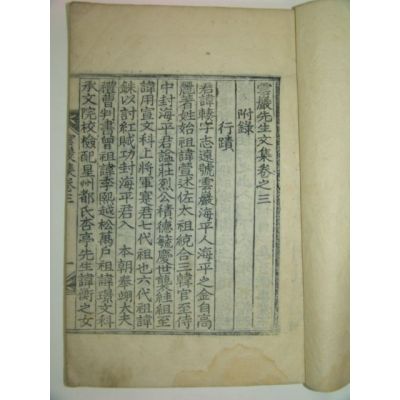 雲巖先生文集卷之三
附錄
行蹟
君諱緀字志遠號雲巖海平人海平之金自高
麗著姓始祖諱宣述佐太祖統合三韓官至侍
中封海平君諡壯烈公積德毓慶世襲絓組至
諱用宣文科上將軍寔君七代祖也六代祖諱
鉌以討紅賊功封海平君入 本朝奉翊大夫
禮曹判書曾祖諱孝熙越松萬戶祖諱環文科
承文院校檢配星州都氏杏亭先生諱衡之女
雲巖集卷三
一